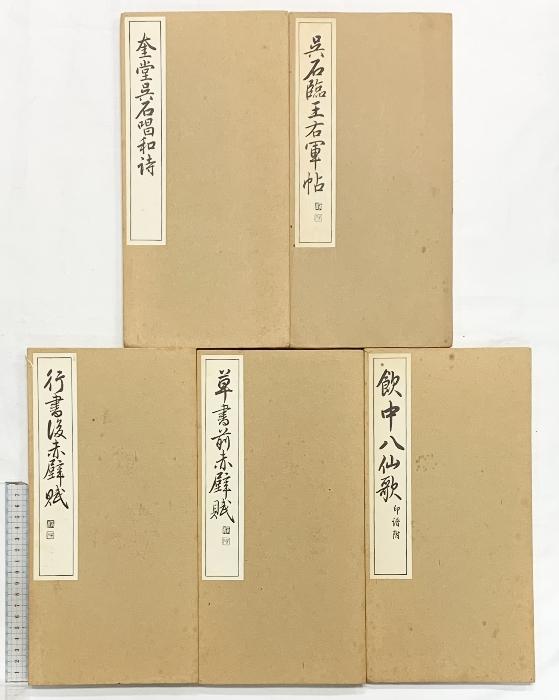 奎堂呉石唱和诗
呉石臨王右軍帖
行書後赤壁賦
草書前赤壁賦
飲中八仙歌
印譜附